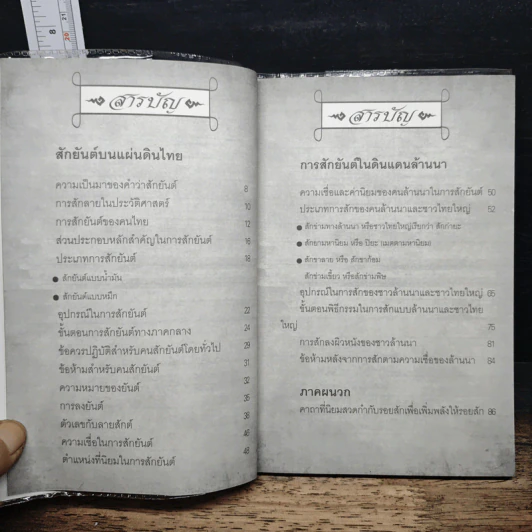 สารบัญ
สักยันต์บนแผ่นดินไทย
ความเป็นมาของคำว่าสักยันต์ 8
การสักลายในประวัติศาสตร์ 10
การสักยันต์ของคนไทย 12
ส่วนประกอบหลักสำคัญในการสักยันต์ 16
ประเภทการสักยันต์ 18
● สักยันต์แบบน้ำมัน
● สักยันต์แบบหมึก
อุปกรณ์ในการสักยันต์ 22
ขั้นตอนการสักยันต์ทางภาคกลาง 24
ข้อควรปฏิบัติสำหรับคนสักยันต์โดยทั่วไป 29
ข้อห้ามสำหรับคนสักยันต์ 31
ความหมายของยันต์ 32
การลงยันต์ 35
ตัวเลขกับลายสักต์ 38
ความเชื่อในการสักยันต์ 46
ตำแหน่งที่นิยมในการสักยันต์ 48
สารบัญ
การสักยันต์ในดินแดนล้านนา
ความเชื่อและค่านิยมของคนล้านนาในการสักยันต์ 50
ประเภทการสักของคนล้านนาและชาวไทยใหญ่ 52
● สักขามทางล้านนา หรือชาวไทยใหญ่เรียกว่า สักก๋ายะ
● สักยามหานิยม หรือ ปิยะ (เมตตามหานิยม)
● สักขาลาย หรือ สักขาก้อม
สักข่ามเขี้ยว หรือสักข่ามพิษ
อุปกรณ์ในการสักของชาวล้านนาและชาวไทยใหญ่ 65
ขั้นตอนพิธีกรรมในการสักแบบล้านนาและชาวไทย
ใหญ่ 75
การสักลงผิวหนังของชาวล้านนา 81
ข้อห้ามหลังจากการสักตามความเชื่อของล้านนา 84
ภาคผนวก
คาถาที่นิยมสวดกำกับรอยสักเพื่อเพิ่มพลังให้รอยสัก 86